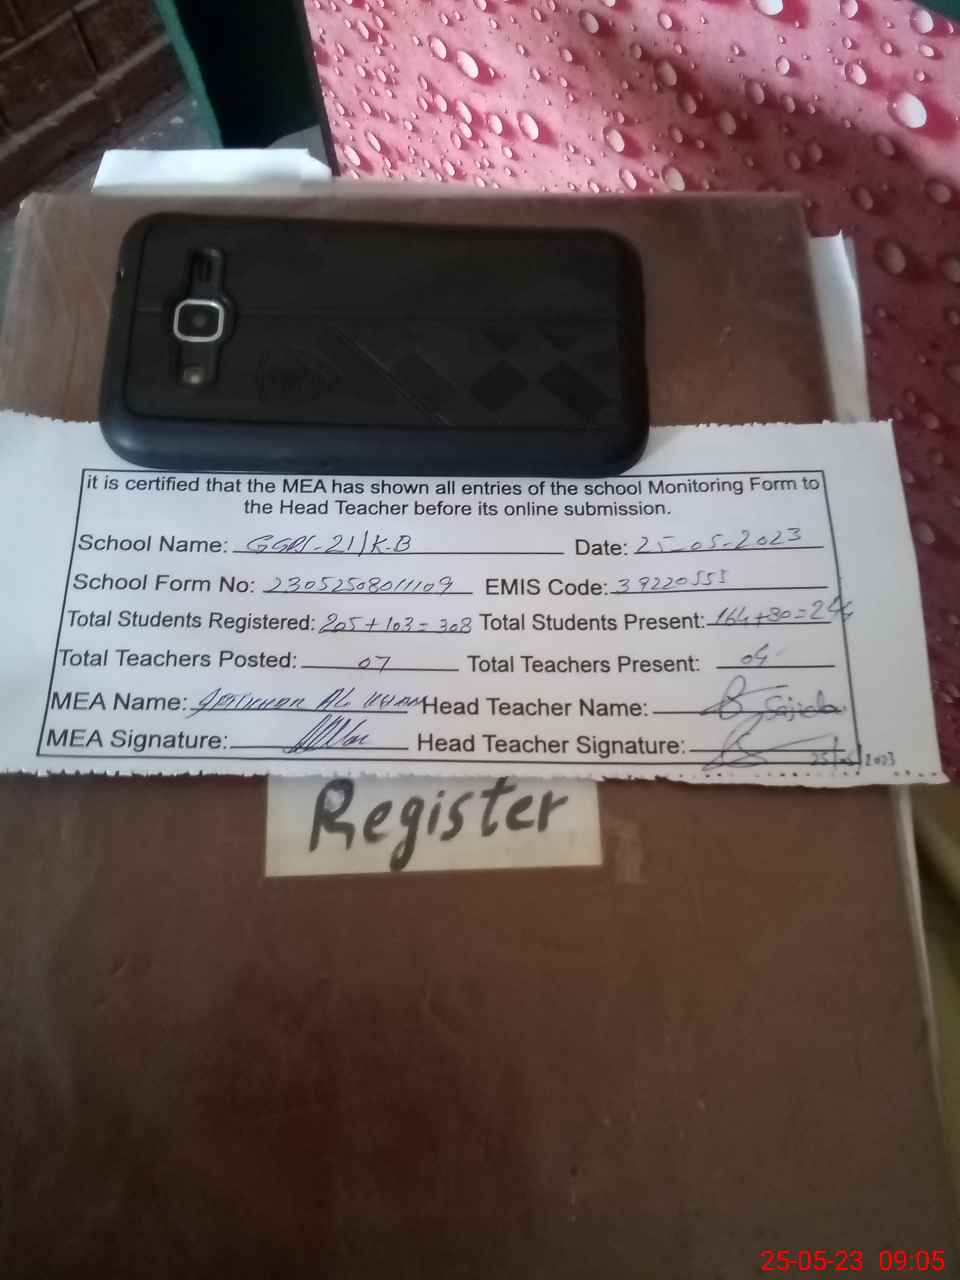 it is certified that the MEA has shown all entries of the school Monitoring Form to
the Head Teacher before its online submission.
School Name: GGPS-21/K.B Date: 25-05-2023
School Form No: 23052508011109 EMIS Code: 39220555
Total Students Registered: 205+103=308 Total Students Present: 164+80=244
Total Teachers Posted: 07 Total Teachers Present: 04
MEA Name: Head Teacher Name: Sajida
MEA Signature: Head Teacher Signature:
25/05/2023
Register
25-05-23 09:05